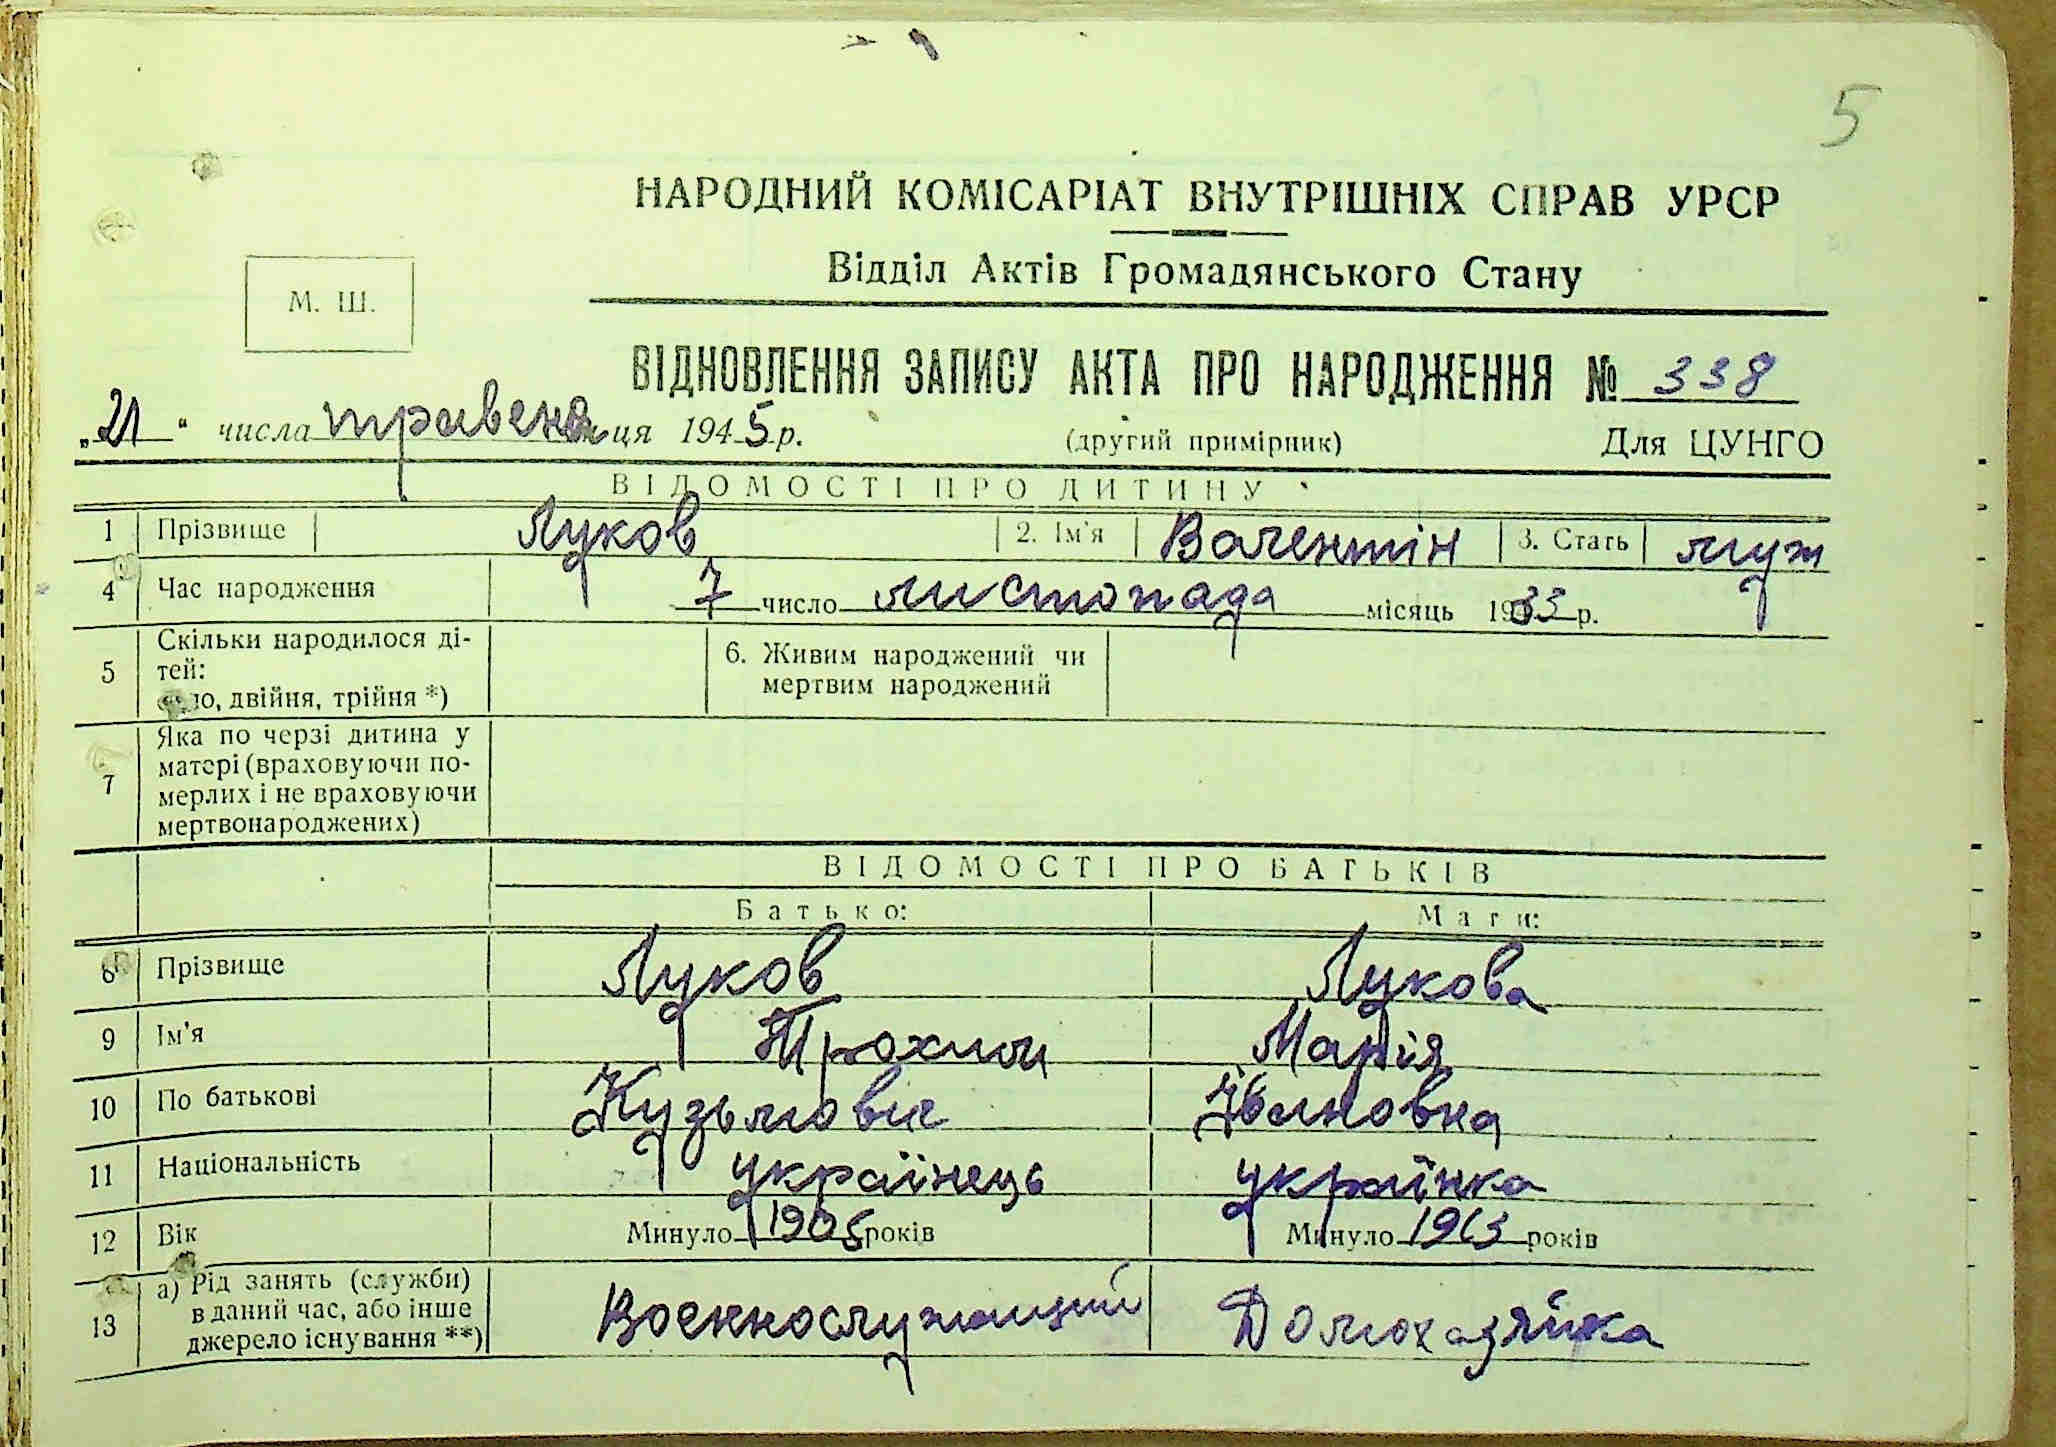 5
НАРОДНИЙ КОМІСАРІАТ ВНУТРІШНІХ СПРАВ УРСР
Відділ Актів Громадянського Стану
М. Ш.
ВІДНОВЛЕННЯ ЗАПИСУ АКТА ПРО НАРОДЖЕННЯ № 338
„21“ числа травена ця 1945 р. (другий примірник) Для ЦУНГО
ВІДОМОСТІ ПРО ДИТИНУ
1 Прізвище Луков 2. Ім'я Валентін 3. Стать муж
4 Час народження 7 число листопада місяць 1933 р.
5 Скільки народилося ді-
тей:
одно, двійня, трійня *)
6. Живим народжений чи
мертвим народжений
7 Яка по черзі дитина у
матері (враховуючи по-
мерлих і не враховуючи
мертвонароджених)
ВІДОМОСТІ ПРО БАТЬКІВ
Батько: Мати:
8 Прізвище Луков Лукова
9 Ім'я Трохим Марія
10 По батькові Кузьмович Івановна
11 Національність українець українка
12 Вік Минуло 1905 років Минуло 1913 років
13 а) Рід занять (служби)
в даний час, або інше
джерело існування **)
Воєннослужащий Домохазяйка